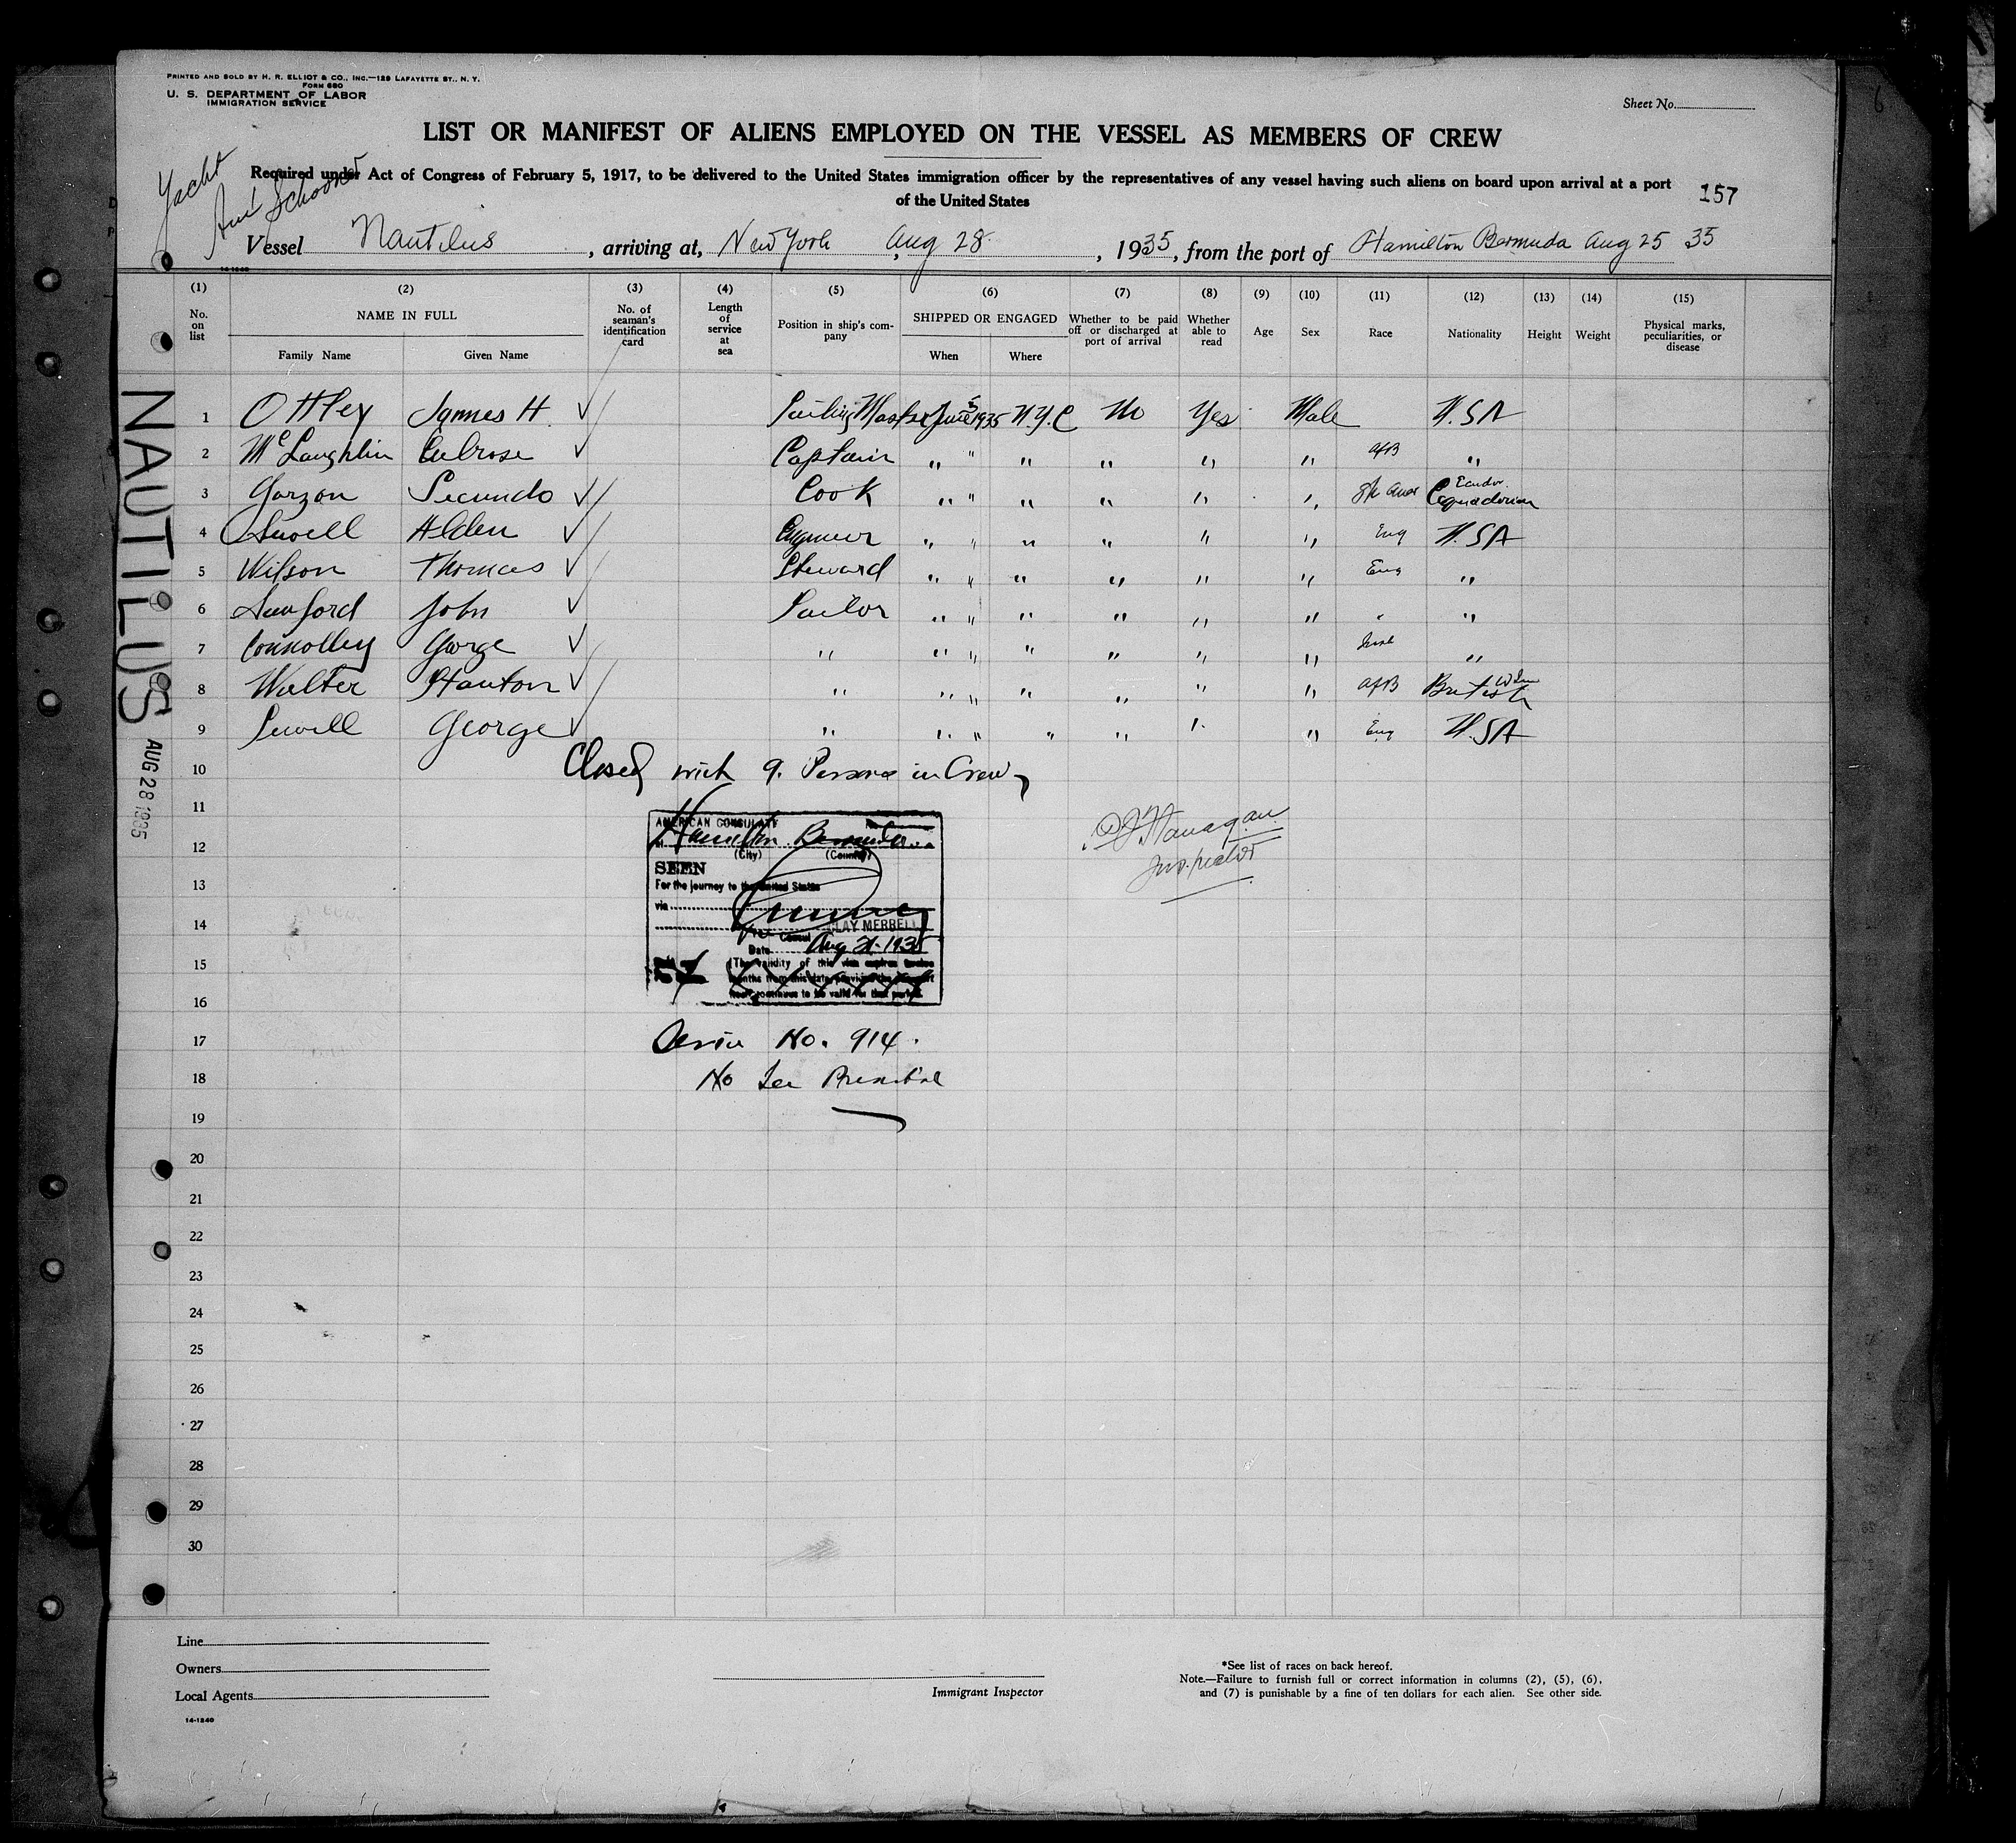 PRINTED AND SOLD BY H. R. ELLIOT & CO., INC.—129 LAFAYETTE ST., N. Y.
FORM 680
U. S. DEPARTMENT OF LABOR
IMMIGRATION SERVICE
Sheet No.
LIST OR MANIFEST OF ALIENS EMPLOYED ON THE VESSEL AS MEMBERS OF CREW
Yacht
Am Schooner
Required under Act of Congress of February 5, 1917, to be delivered to the United States immigration officer by the representatives of any vessel having such aliens on board upon arrival at a port
of the United States
157
Vessel Nautilus, arriving at, New York, Aug 28, 1935, from the port of Hamilton Bermuda Aug 25 35
14-1240
(1) (2) (3) (4) (5) (6) (7) (8) (9) (10) (11) (12) (13) (14) (15)
No. on list
NAME IN FULL
Family Name
Given Name
No. of seaman's identification card
Length of service at sea
Position in ship's company
SHIPPED OR ENGAGED
When
Where
Whether to be paid off or discharged at port of arrival
Whether able to read
Age
Sex
Race
Nationality
Height
Weight
Physical marks, peculiarities, or disease
1 Ottley James H. Sailing Master June 5 1935 N.Y.C No Yes Male U.S.A
2 McLaughlin Captain " " " " " " Af B "
3 Garzon Secundo Cook " " " " " " Sp Amer Ecuador. Equadorian
4 Sewell Alden Engineer " " " " " " Eng U.S.A
5 Wilson Thomas Steward " " " " " " Eng "
6 Sanford John Sailor " " " " " " " "
7 Connolley George " " " " " " " Irish "
8 Walter Stanton " " " " " " " Af B British W Ind
9 Sewell George " " " " " " " Eng U.S.A
10 Closed with 9. Persons in Crew
11
12
13
14
15
16
17
18
19
20
21
22
23
24
25
26
27
28
29
30
NAUTILUS
AUG 28 1935
AMERICAN CONSULATE
at Hamilton Bermuda
(City) (Country)
SEEN
For the journey to the United States
via
CLAY MERRELL
Vice Consul
Date Aug 21-1935
(The validity of this visa expires twelve
months from this date provided the passport
continues to be valid for that period.
Inspector
No. 914.
No Fee Prescribed
Line
Owners
Local Agents
14-1240
Immigrant Inspector
*See list of races on back hereof.
Note.—Failure to furnish full or correct information in columns (2), (5), (6),
and (7) is punishable by a fine of ten dollars for each alien. See other side.